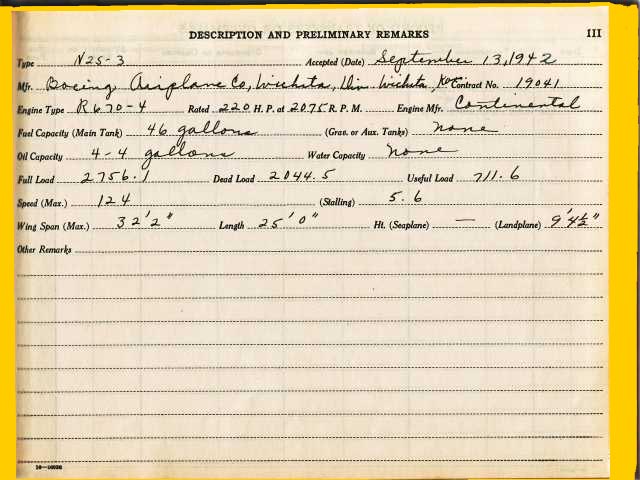 DESCRIPTION AND PRELIMINARY REMARKS III
Type N2S-3 Accepted (Date) September 13, 1942
Mfr. Boeing Airplane Co, Wichita, Div. Wichita, Kan. Contract No. 19041
Engine Type R670-4 Rated 220 H. P. at 2075 R. P. M. Engine Mfr. Continental
Fuel Capacity (Main Tank) 46 gallons (Grav. or Aux. Tanks) none
Oil Capacity 4-4 gallons Water Capacity none
Full Load 2756.1 Dead Load 2044.5 Useful Load 711.6
Speed (Max.) 124 (Stalling) 5.6
Wing Span (Max.) 32'2" Length 25'0" Ht. (Seaplane) — (Landplane) 9'4½"
Other Remarks